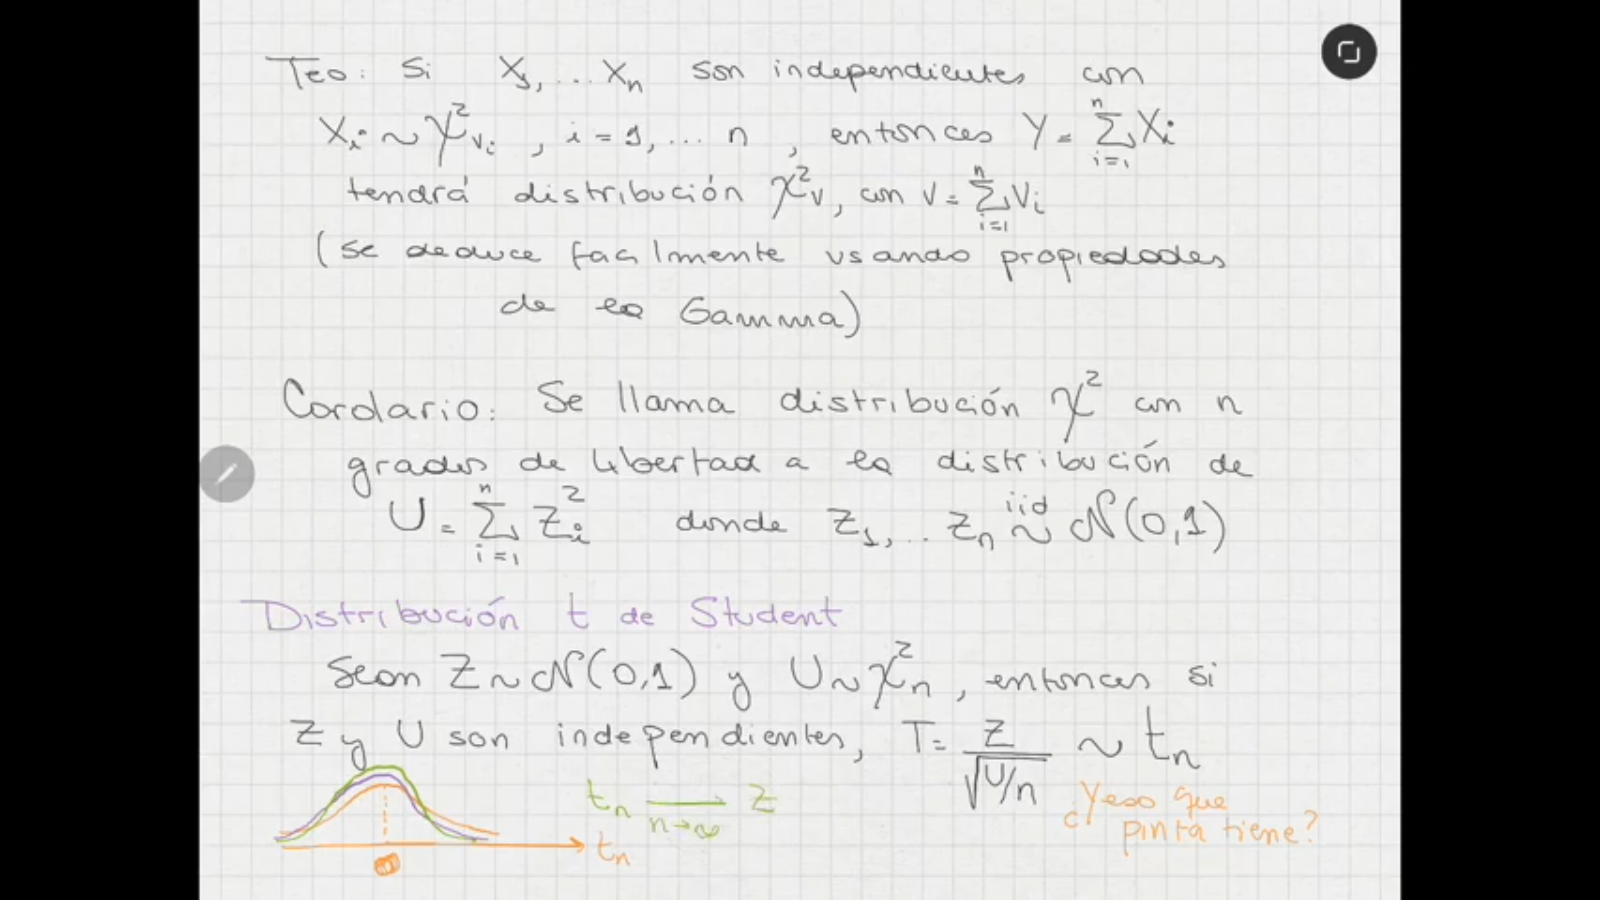 Teo: Si X₁, ... Xₙ son independientes con
Xᵢ ~ χ²ᵥᵢ , i = 1, ... n , entonces Y = Σᵢ₌₁ⁿ Xᵢ
tendrá distribución χ²ᵥ, con ν = Σᵢ₌₁ⁿ νᵢ
(se deduce facilmente usando propiedades
de la Gamma)
Corolario: Se llama distribución χ² con n
grados de libertad a la distribución de
U = Σᵢ₌₁ⁿ Zᵢ² donde Z₁, ... Zₙ iid ~ N(0,1)
Distribución t de Student
Sean Z ~ N(0,1) y U ~ χ²ₙ , entonces si
Z y U son independientes, T = Z / √(U/n) ~ tₙ
tₙ ⟶ Z
n→∞
¿Y eso que
pinta tiene?
tₙ
0